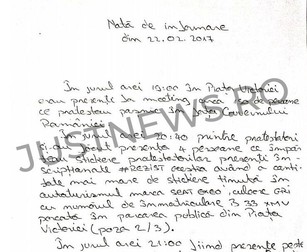 Notă de informare
din 22.02.2017
În jurul orei 19:00 în Piața Victoriei
erau prezente la meeting circa 150 de persoane
ce protestau pașnic în fața Guvernului
României
În jurul orei 20:40 printre protestatari
au prezente 4 persoane ce împăr
țeau stickere protestatarilor prezenți în-
scripționate #REZIST aceștia având o canti-
tate mai mare de stickere ținută în
autoturismul marca SEAT EXEO, culoare GRI
cu numărul de înmatriculare B 33 XMV
parcată în parcarea publică din Piața
Victoriei (poza 2/3).
În jurul orei 21:00 fiind prezente
JUSTNEWS.RO